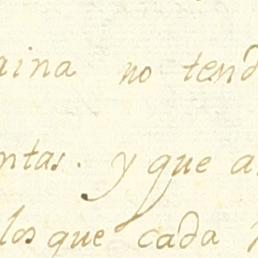 aina no tend
ntas. y que a
los que cada